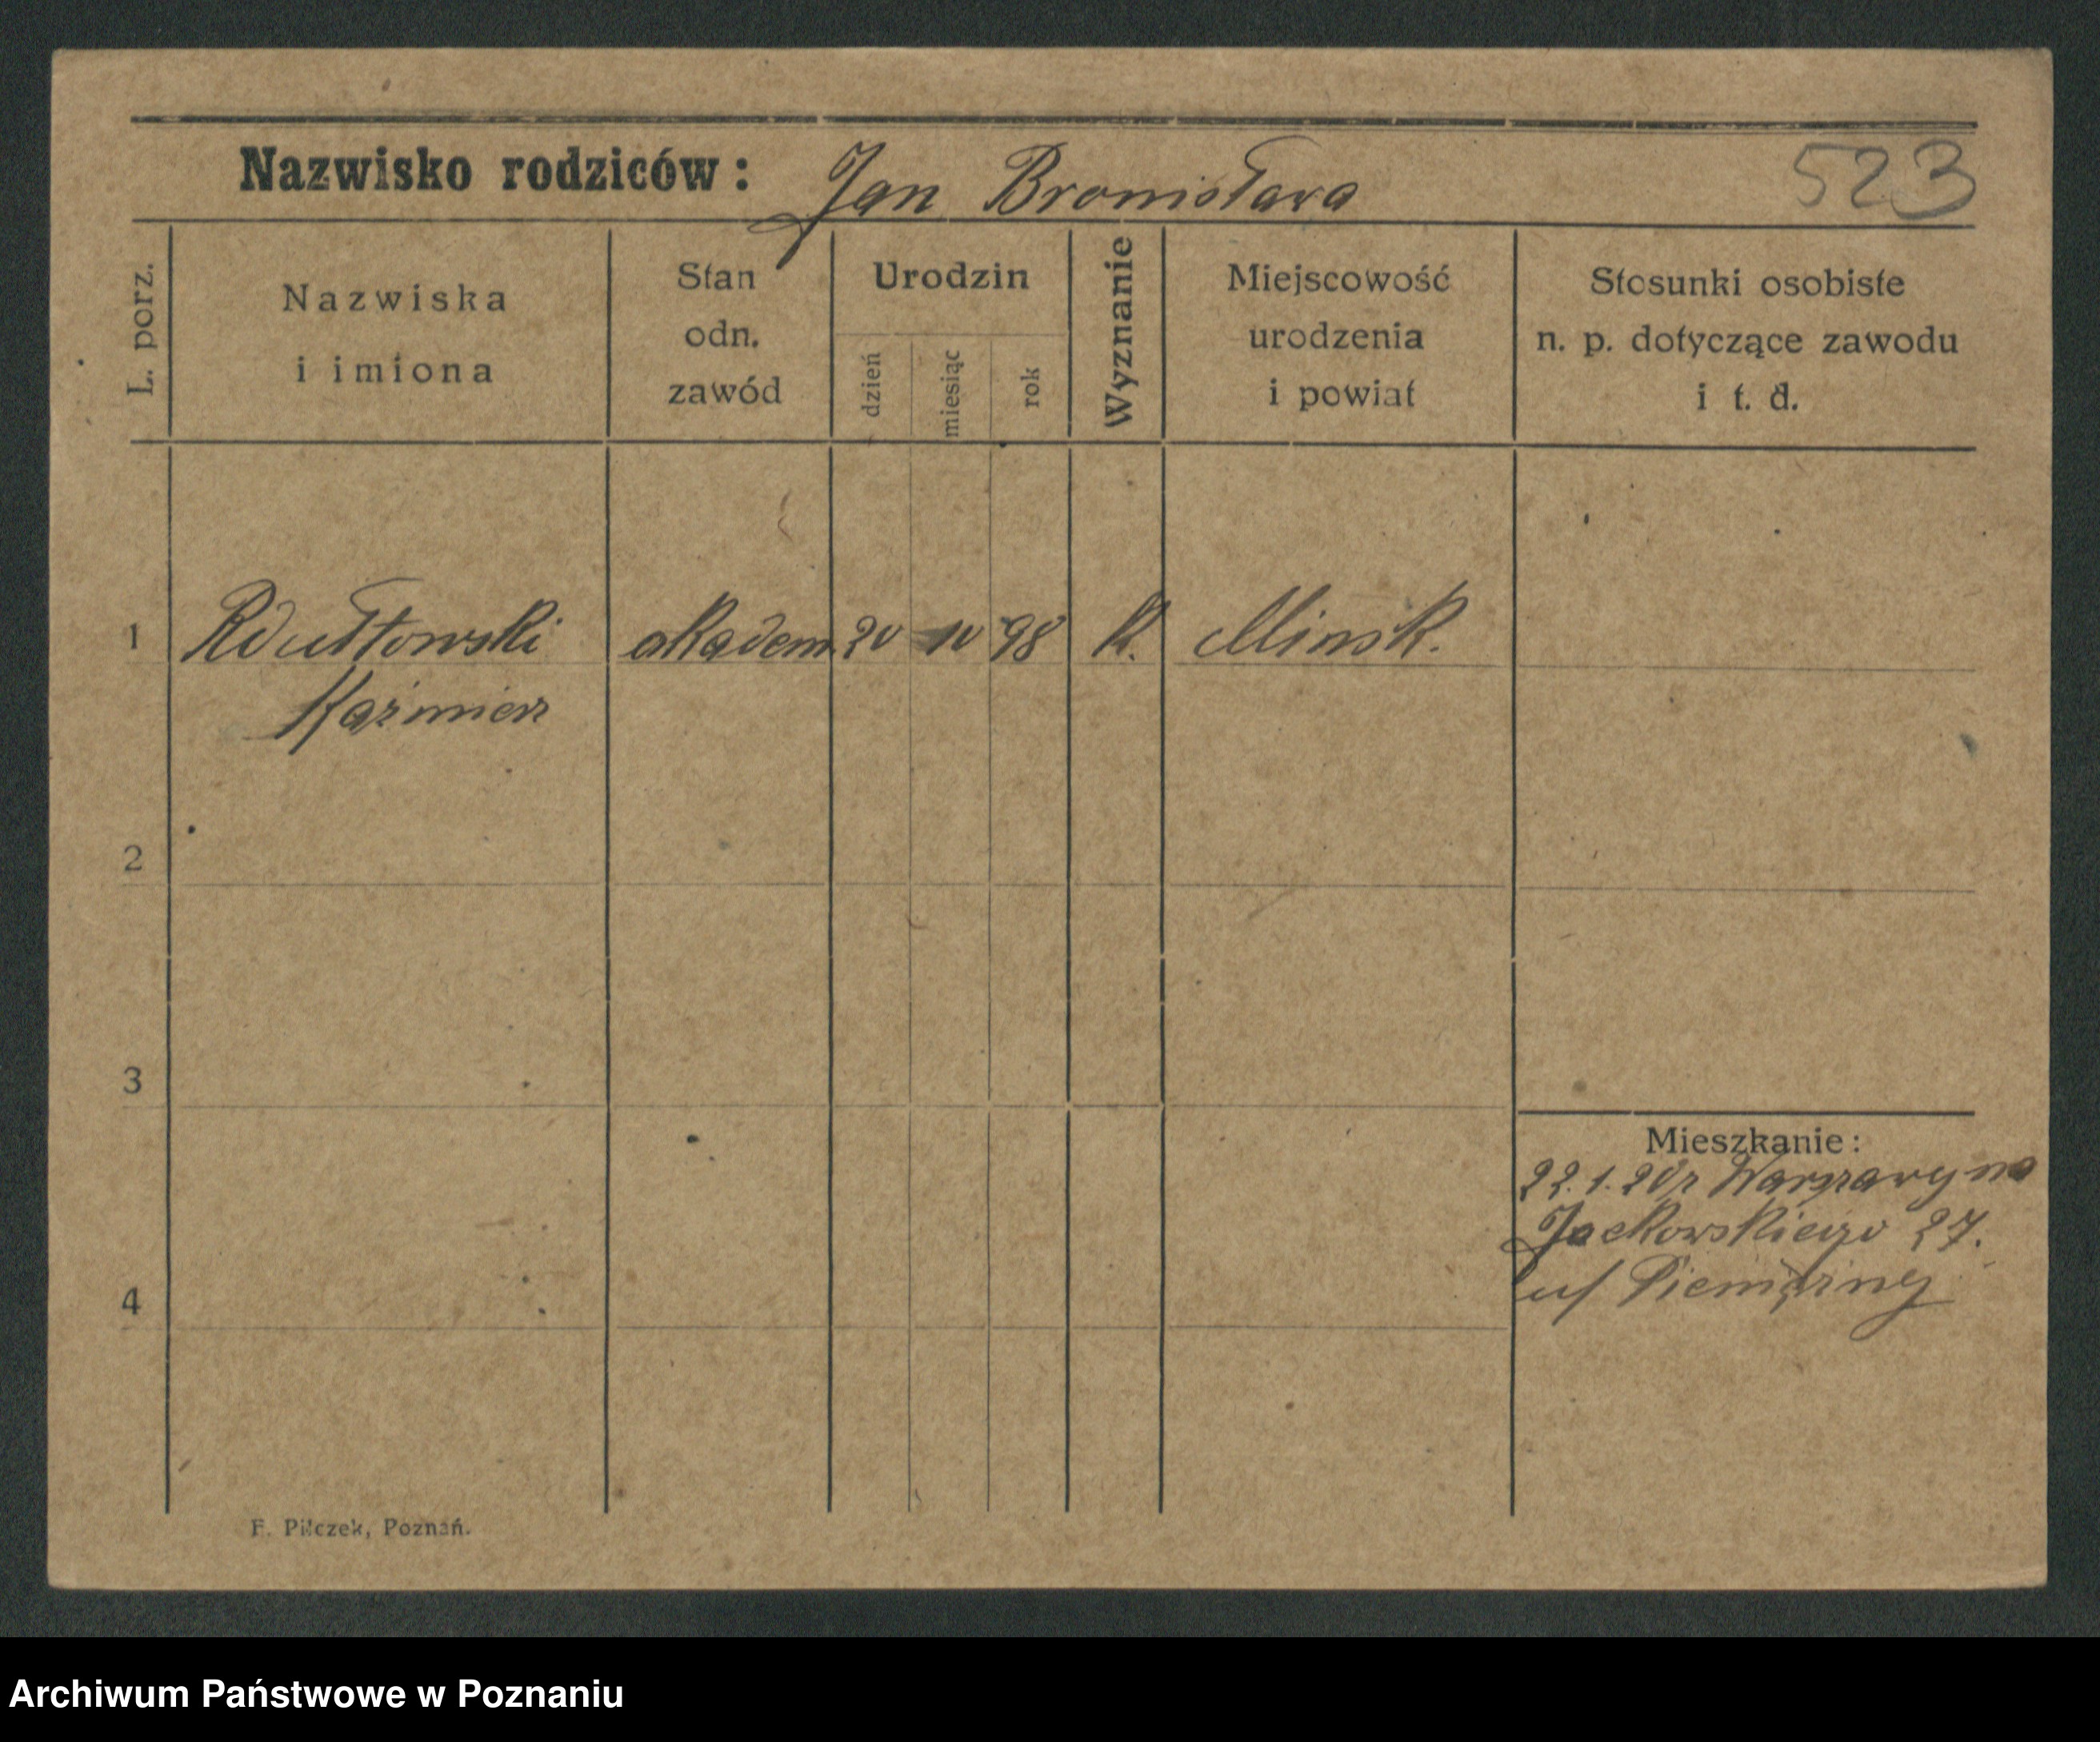 Nazwisko rodziców: Jan Bronisława 523
L. porz.
Nazwiska
i imiona
Stan
odn.
zawód
Urodzin
dzień
miesiąc
rok
Wyznanie
Miejscowość
urodzenia
i powiat
Stosunki osobiste
n. p. dotyczące zawodu
i t. d.
1 Rdułtowski akadem. 20 10 98 K. Minsk.
Kaźmierz
2
3
4
Mieszkanie:
22.1.20 z Warszawy na
Jackowskiego 27.
u/
F. Pilczek, Poznań.
Archiwum Państwowe w Poznaniu